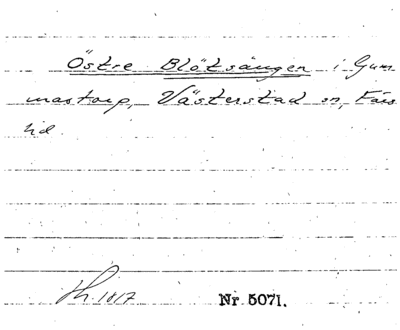 Östre Blötsängen i Gum
mastorp, Västerstad sn, Färs
hd.
Lh. 1817 Nr 5071.